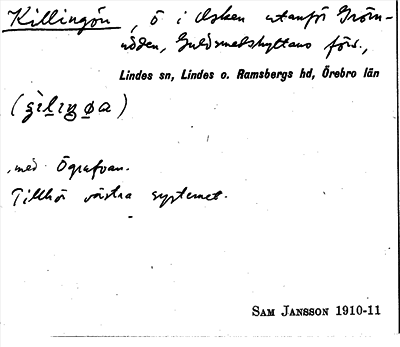 Killingön, ö i Usken utanför Gröm-
udden, Guldsmedshyttans förs.,
Lindes sn, Lindes o. Ramsbergs hd, Örebro län
med Ögrafvan.
Tillhör västra systemet.
SAM JANSSON 1910-11